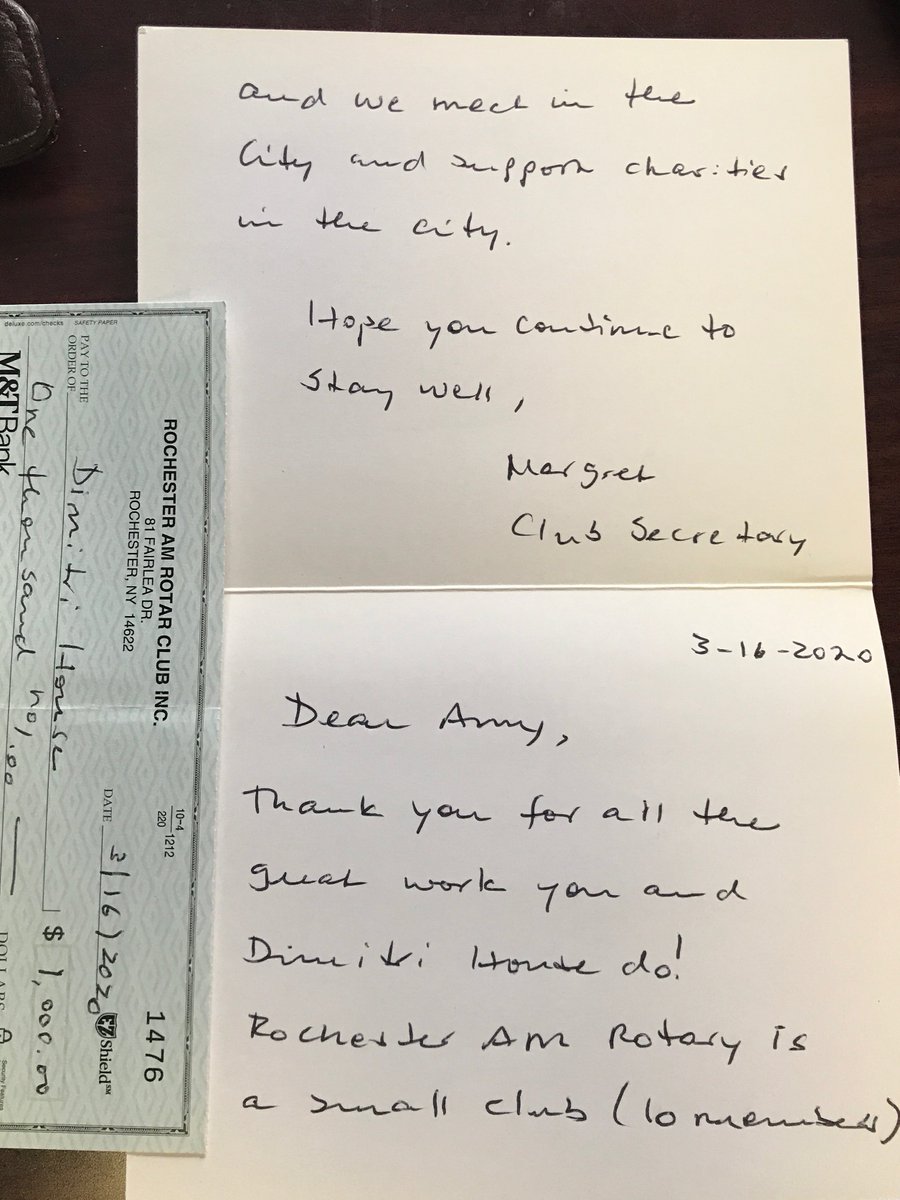 and we meet in the
City and support charities
in the city.
Hope you continue to
Stay well,
Margret
Club Secretary
3-16-2020
Dear Amy,
Thank you for all the
great work you and
Dimitri House do!
Rochester AM Rotary is
a small club (10 members)
ROCHESTER AM ROTAR CLUB INC.
81 FAIRLEA DR.
ROCHESTER, NY 14622
10-4
220 1212
1476
DATE 3/16/2020
EZShield℠
PAY TO THE
ORDER OF Dimitri House $ 1,000.00
One thousand no/.00 DOLLARS
Security Features
M&T Bank
deluxe.com/checks SAFETY PAPER